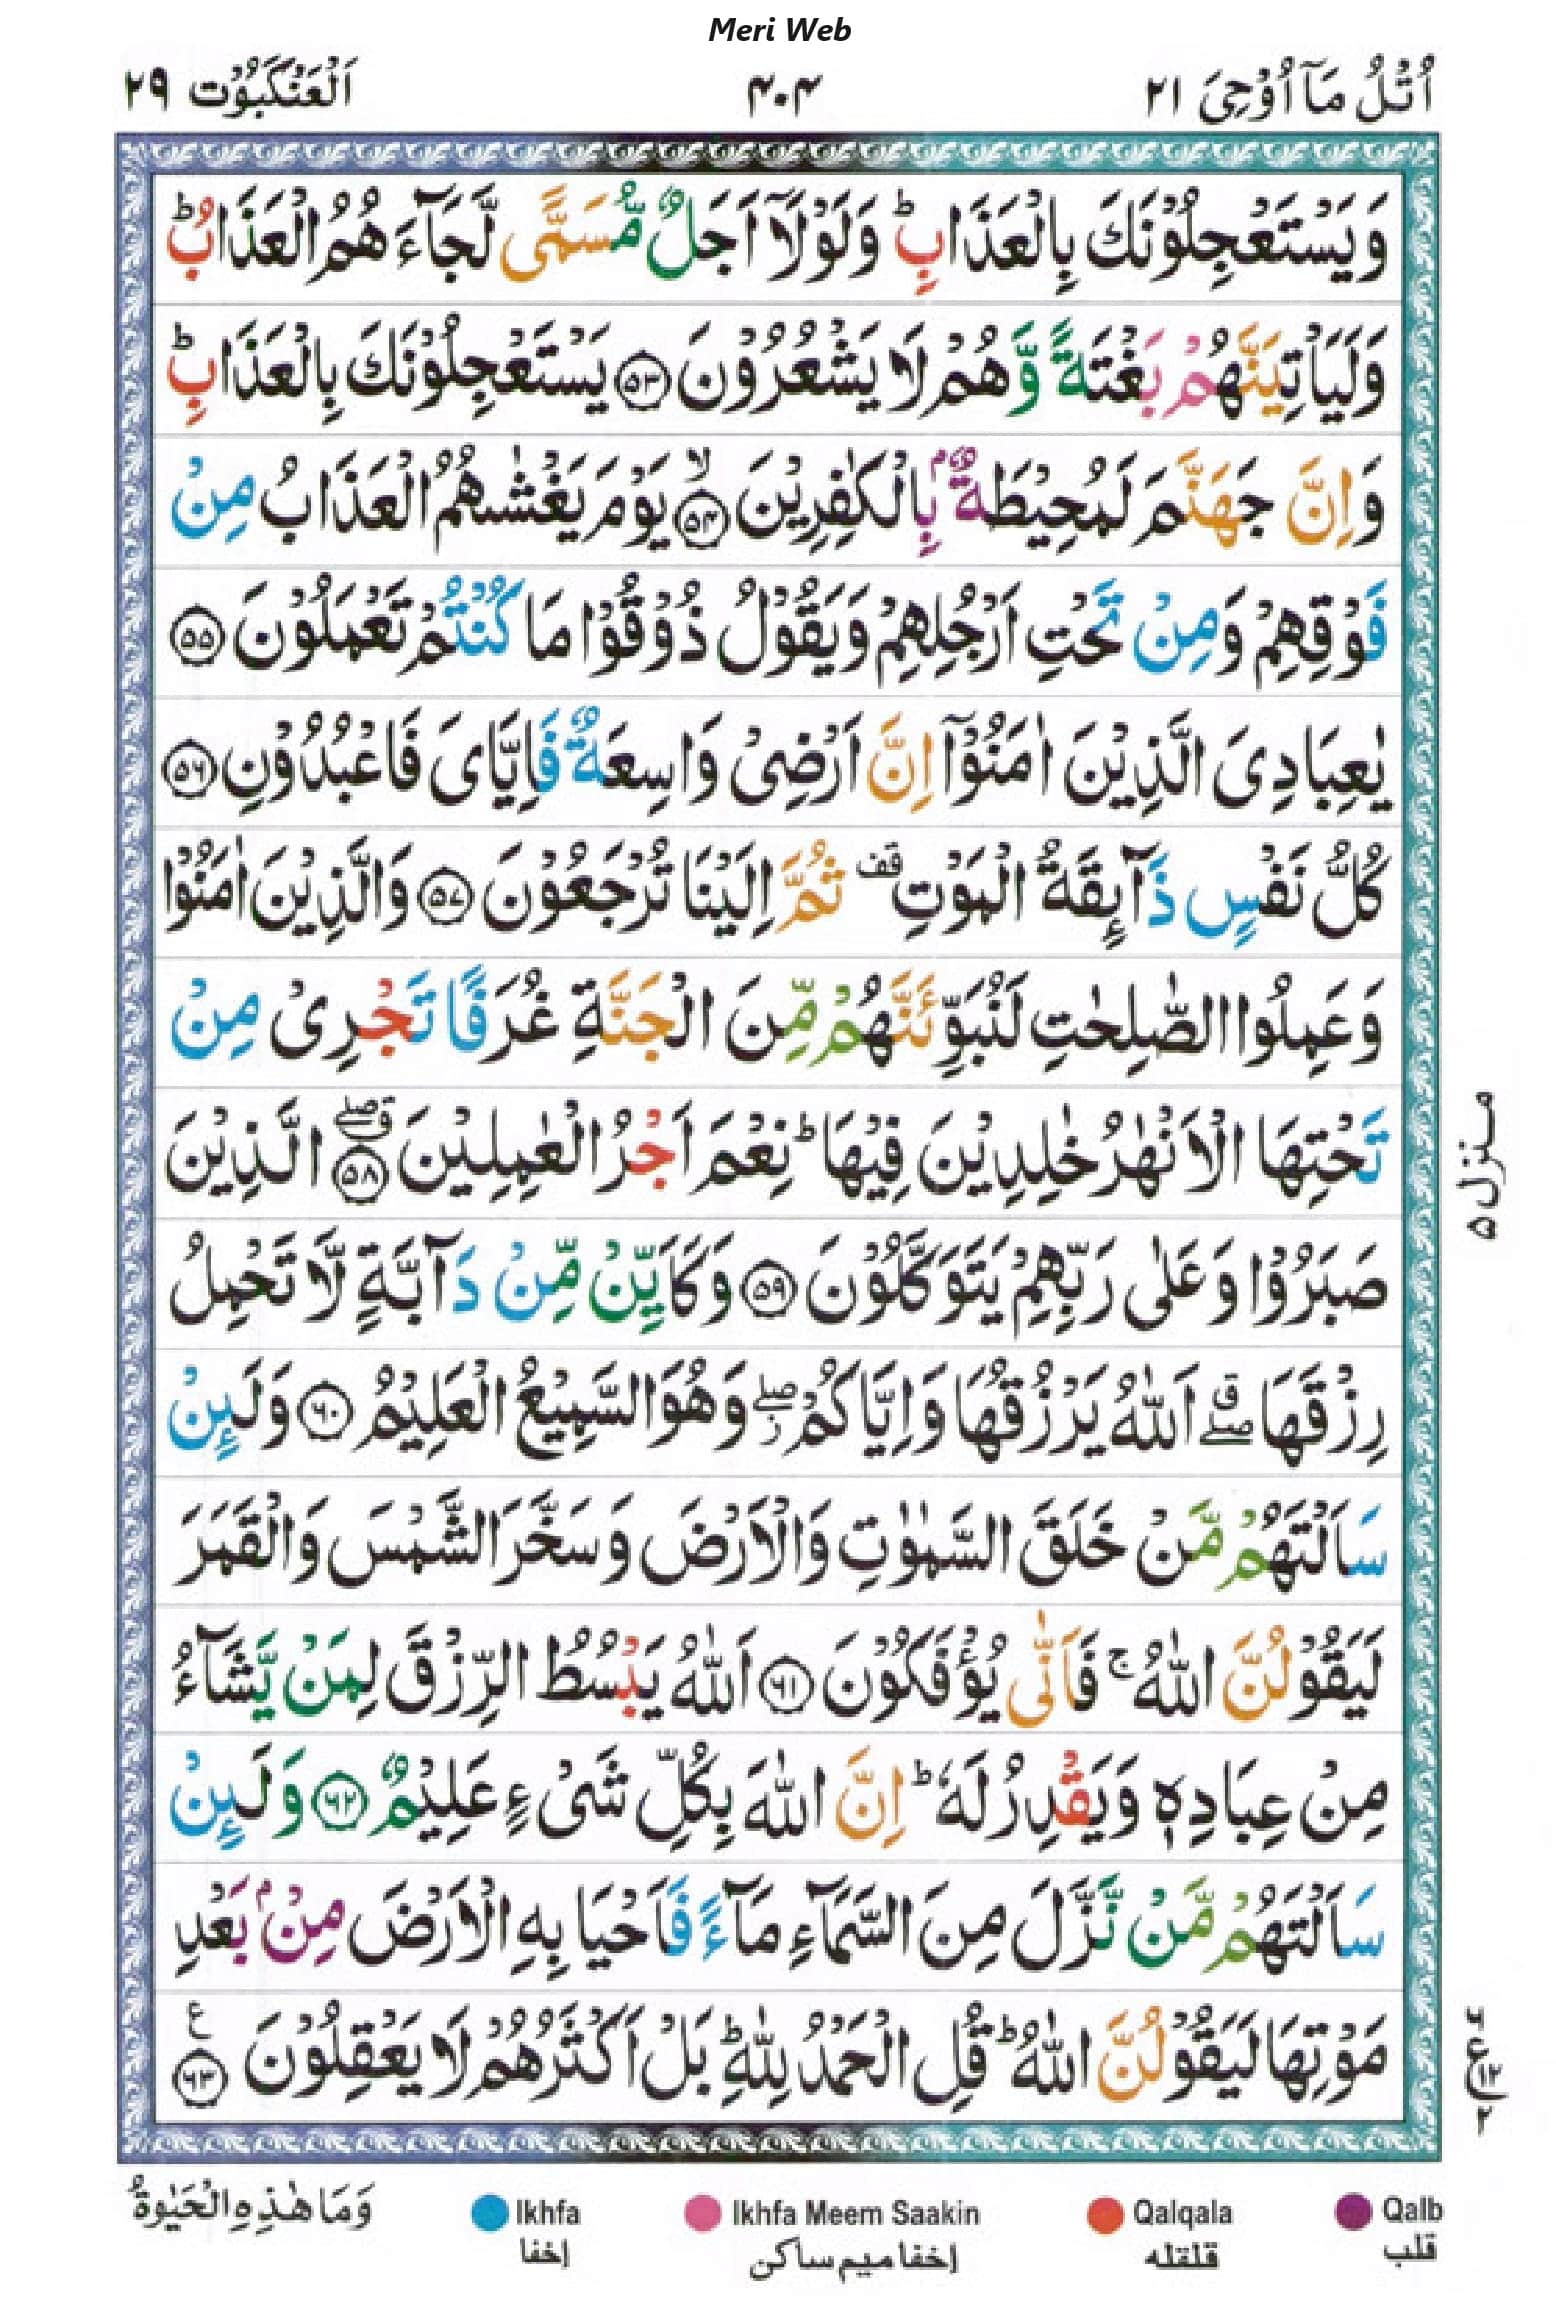 Meri Web
اُتْلُ مَآ اُوْحِیَ ۲۱
۴۰۴
اَلْعَنْكَبُوْت ۲۹
وَيَسْتَعْجِلُوْنَكَ بِالْعَذَابِ ؕ وَلَوْلَاۤ اَجَلٌ مُّسَمًّى لَّجَآءَهُمُ الْعَذَابُ ؕ
وَلَيَاْتِيَنَّهُمْ بَغْتَةً وَّهُمْ لَا يَشْعُرُوْنَ ۵۳ يَسْتَعْجِلُوْنَكَ بِالْعَذَابِ ؕ
وَاِنَّ جَهَنَّمَ لَمُحِيْطَةٌۢ بِالْكٰفِرِيْنَ ۙ ۵۴ يَوْمَ يَغْشٰىهُمُ الْعَذَابُ مِنْ
فَوْقِهِمْ وَمِنْ تَحْتِ اَرْجُلِهِمْ وَيَقُوْلُ ذُوْقُوْا مَا كُنْتُمْ تَعْمَلُوْنَ ۵۵
يٰعِبَادِىَ الَّذِيْنَ اٰمَنُوْۤا اِنَّ اَرْضِىْ وَاسِعَةٌ فَاِيَّاىَ فَاعْبُدُوْنِ ۵۶
كُلُّ نَفْسٍ ذَآئِقَةُ الْمَوْتِ قف ثُمَّ اِلَيْنَا تُرْجَعُوْنَ ۵۷ وَالَّذِيْنَ اٰمَنُوْا
وَعَمِلُوا الصّٰلِحٰتِ لَنُبَوِّئَنَّهُمْ مِّنَ الْجَنَّةِ غُرَفًا تَجْرِىْ مِنْ
تَحْتِهَا الْاَنْهٰرُ خٰلِدِيْنَ فِيْهَا ؕ نِعْمَ اَجْرُ الْعٰمِلِيْنَ ۗۖ ۵۸ الَّذِيْنَ
صَبَرُوْا وَعَلٰى رَبِّهِمْ يَتَوَكَّلُوْنَ ۵۹ وَكَاَيِّنْ مِّنْ دَآبَّةٍ لَّا تَحْمِلُ
رِزْقَهَا ۗۖ اَللّٰهُ يَرْزُقُهَا وَاِيَّاكُمْ ۖز وَهُوَ السَّمِيْعُ الْعَلِيْمُ ۶۰ وَلَئِنْ
سَاَلْتَهُمْ مَّنْ خَلَقَ السَّمٰوٰتِ وَالْاَرْضَ وَسَخَّرَ الشَّمْسَ وَالْقَمَرَ
لَيَقُوْلُنَّ اللّٰهُ ۚ فَاَنّٰى يُؤْفَكُوْنَ ۶۱ اَللّٰهُ يَبْسُطُ الرِّزْقَ لِمَنْ يَّشَآءُ
مِنْ عِبَادِهٖ وَيَقْدِرُ لَهٗ ؕ اِنَّ اللّٰهَ بِكُلِّ شَىْءٍ عَلِيْمٌ ۶۲ وَلَئِنْ
سَاَلْتَهُمْ مَّنْ نَّزَّلَ مِنَ السَّمَآءِ مَآءً فَاَحْيَا بِهِ الْاَرْضَ مِنْۢ بَعْدِ
مَوْتِهَا لَيَقُوْلُنَّ اللّٰهُ ؕ قُلِ الْحَمْدُ لِلّٰهِ ؕ بَلْ اَكْثَرُهُمْ لَا يَعْقِلُوْنَ ۶۳ ع
منزل ۵
۶
ع ۱۲
۲
Qalb
قلب
Qalqala
قلقلہ
Ikhfa Meem Saakin
إخفا میم ساکن
Ikhfa
إخفا
وَمَا هٰذِهِ الْحَيٰوةُ